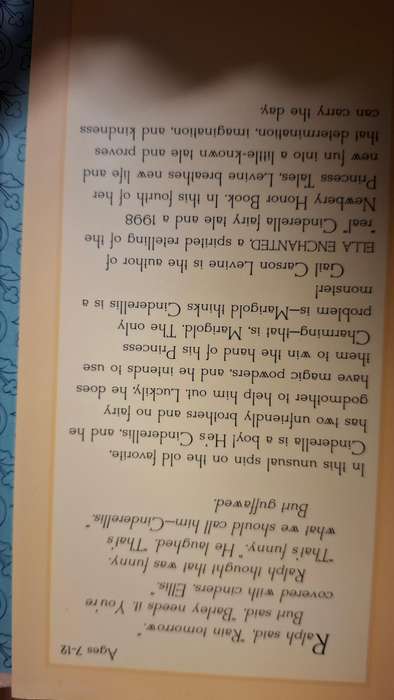 Ages 7-12
Ralph said, "Rain tomorrow."
Burt said, "Barley needs it. You're
covered with cinders, Ellis."
Ralph thought that was funny.
"That's funny." He laughed. "That's
what we should call him—Cinderellis."
Burt guffawed.
In this unusual spin on the old favorite,
Cinderella is a boy! He's Cinderellis, and he
has two unfriendly brothers and no fairy
godmother to help him out. Luckily, he does
have magic powders, and he intends to use
them to win the hand of his Princess
Charming—that is, Marigold. The only
problem is—Marigold thinks Cinderellis is a
monster!
Gail Carson Levine is the author of
ELLA ENCHANTED, a spirited retelling of the
"real" Cinderella fairy tale and a 1998
Newbery Honor Book. In this fourth of her
Princess Tales, Levine breathes new life and
new fun into a little-known tale and proves
that determination, imagination, and kindness
can carry the day.